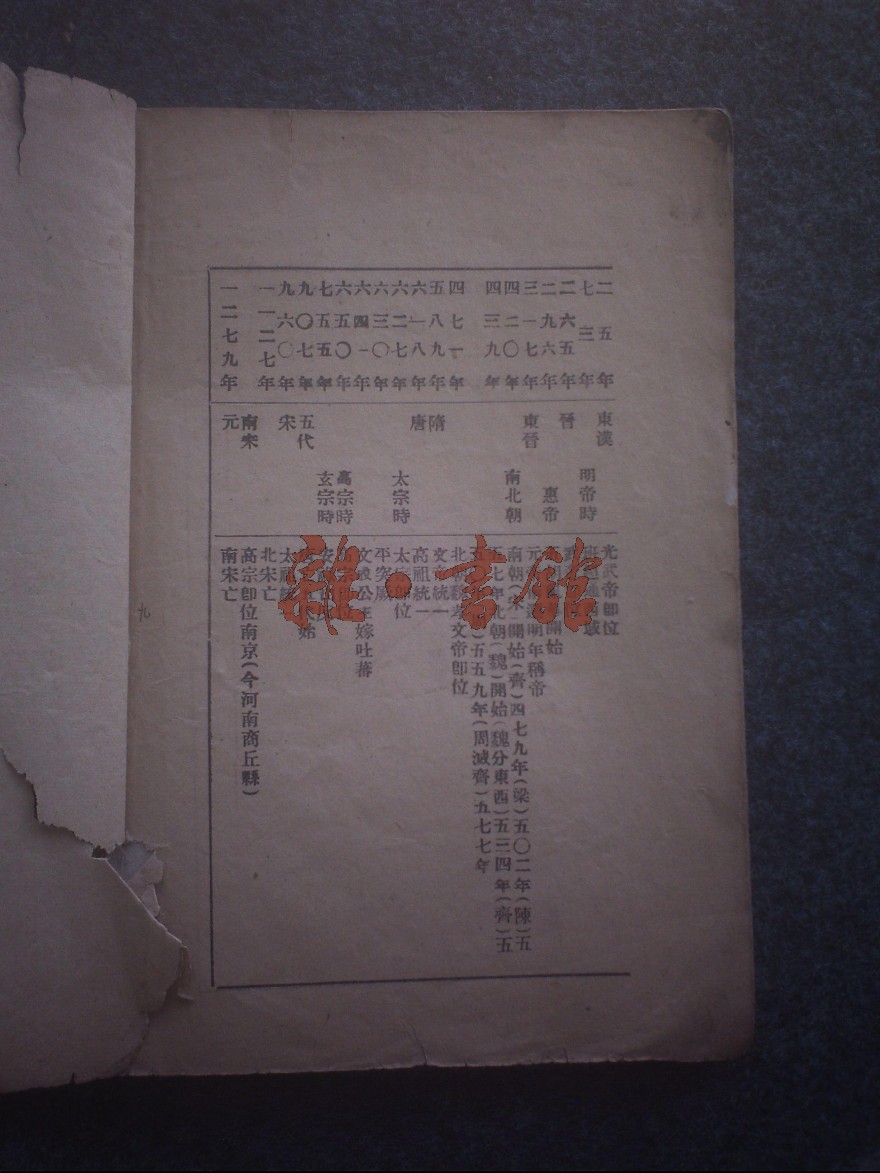 二五年 東漢 光武帝卽位
七三年 明帝時
二六五年 晉
二九六年 惠帝 開始
三一七年 東晉 元 明年稱帝
四二〇年 南北朝 南朝(宋)開始(齊)四七九年(梁)五〇二年(陳)五
四三九年 七年北朝(魏)開始(魏分東西)五三四年(齊)五
五 五五九年(周滅齊)五七七年
四七一年 北朝魏孝文帝卽位
五八九年 隋 文帝統一
六一八年 唐 高祖統一
六二七年 太宗時 太宗卽位
六三〇年 平突厥
六四一年 文成公主嫁吐蕃
六五〇年 高宗時
七五五年 玄宗時
九〇七年 五代 始
九六〇年 宋 太祖統一
一一二七年 北宋亡
南宋 高宗卽位南京(今河南商丘縣)
一二七九年 元 南宋亡
九
雜·書舘